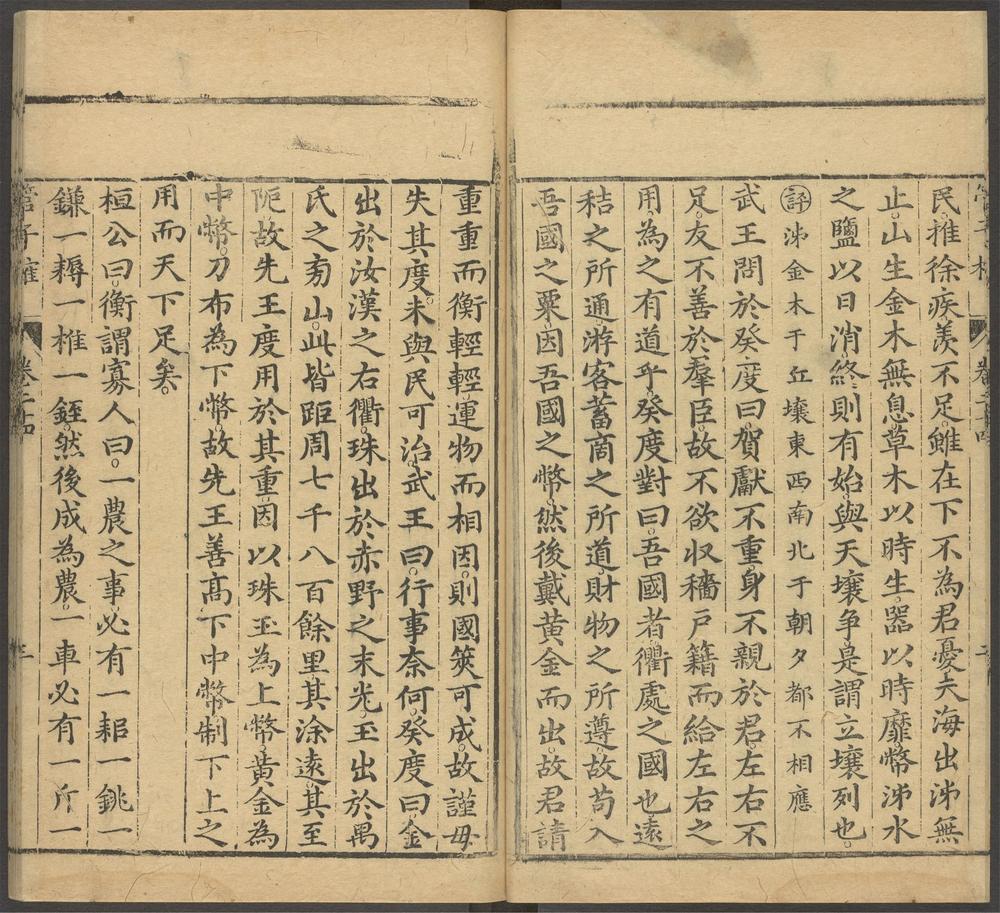 民推徐疾羨不足雖在下不為君憂夫海出泲無
止山生金木無息草木以時生器以時靡幣泲水
之鹽以日消終則有始與天壤争是謂立壤列也
評泲金木于丘壤東西南北于朝夕都不相應
武王問於癸度曰賀獻不重身不親於君左右不
足友不善於羣臣故不欲収穡戸籍而給左右之
用為之有道乎癸度對曰吾國者衢處之國也遠
秸之所通游客蓄商之所道財物之所遵故苟入
吾國之粟因吾國之幣然後戴黄金而出故君請
重重而衡輕輕運物而相因則國筴可成故謹毋
失其度未與民可治武王曰行事奈何癸度曰金
出於汝漢之右衢珠出於赤野之末光玉出於禺
氏之旁山此皆距周七千八百餘里其涂遠其至
阨故先王度用於其重因以珠玉為上幣黄金為
中幣刀布為下幣故先王善高下中幣制下上之
用而天下足矣
桓公曰衡謂寡人曰一農之事必有一耜一銚一
鎌一耨一椎一銍然後成為農一車必有一斤一
管子榷 卷二十四